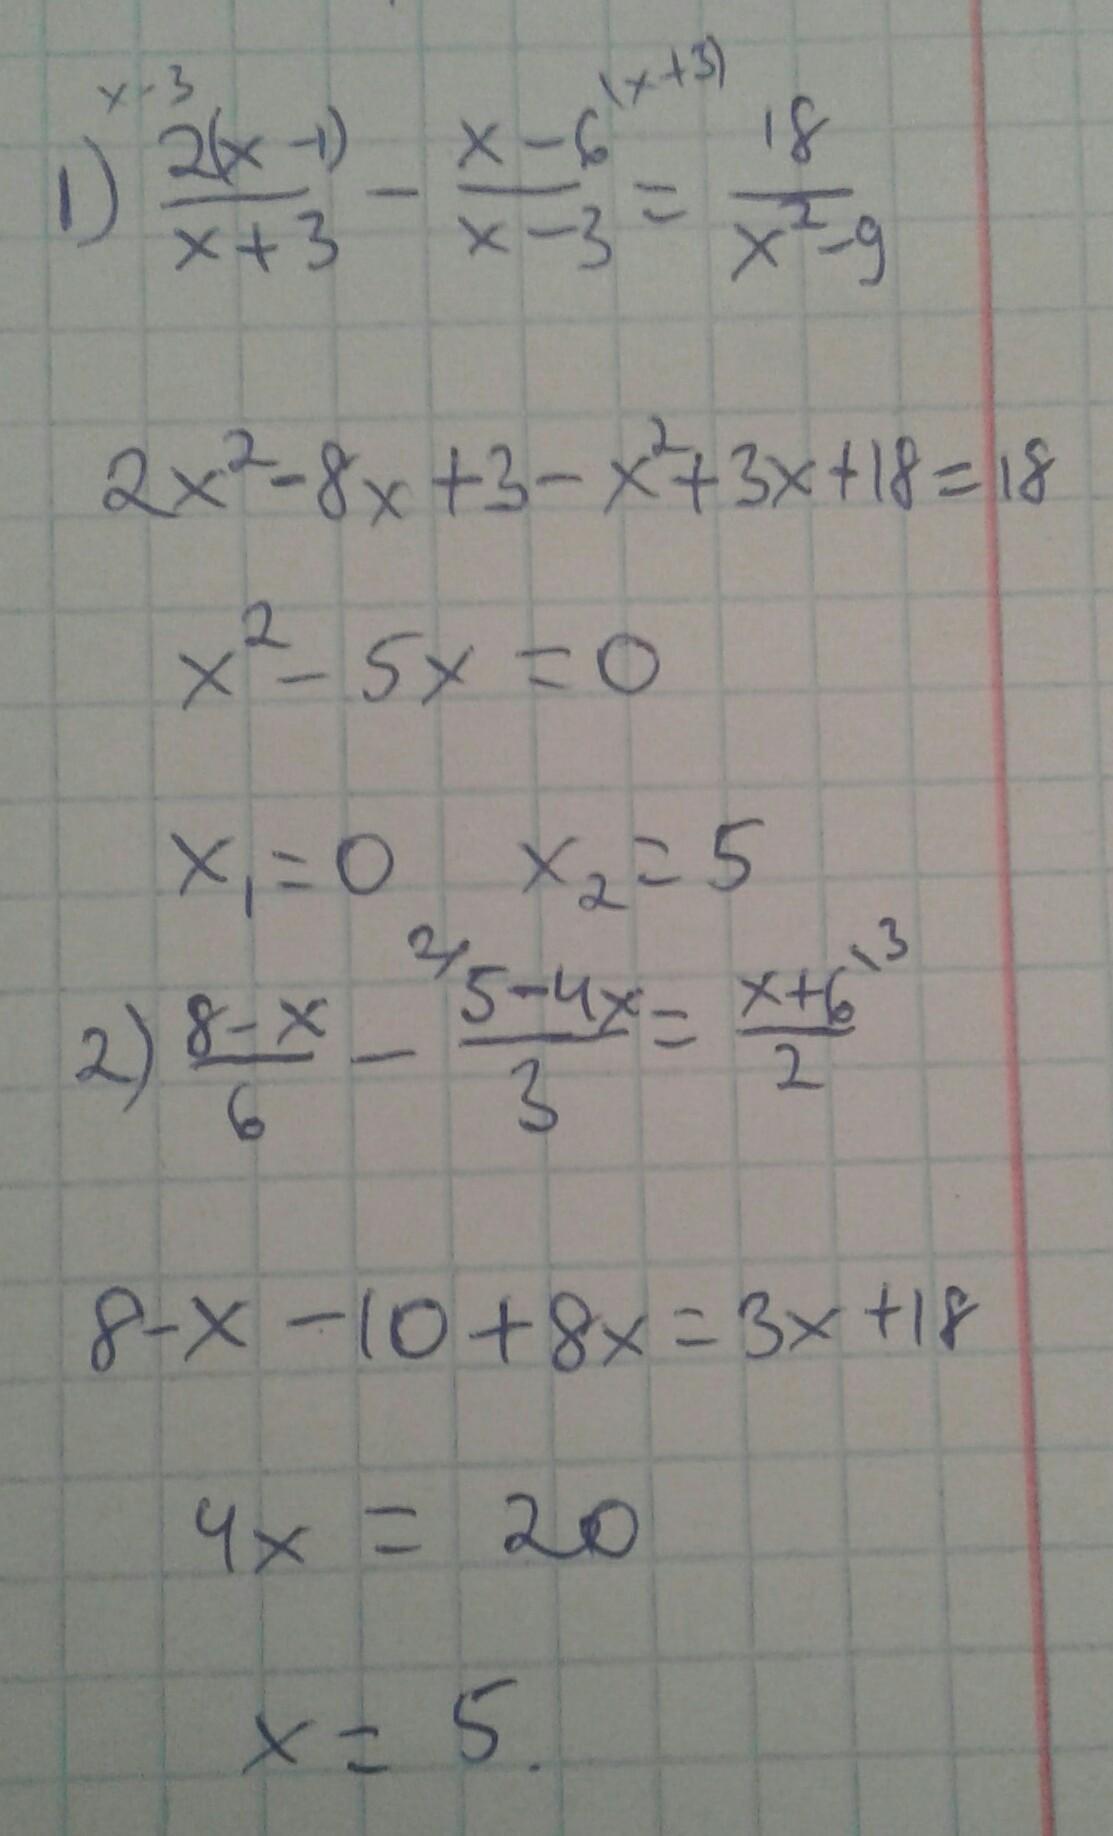 1) x-3 2(x-1)/x+3 - x-6 (x+3)/x-3 = 18/x²-9
2x²-8x+3-x²+3x+18=18
x²-5x=0
x₁=0 x₂=5
2) 8-x/6 - 2/ 5-4x/3 = x+6 \3/2
8-x-10+8x=3x+18
4x = 20
x = 5.